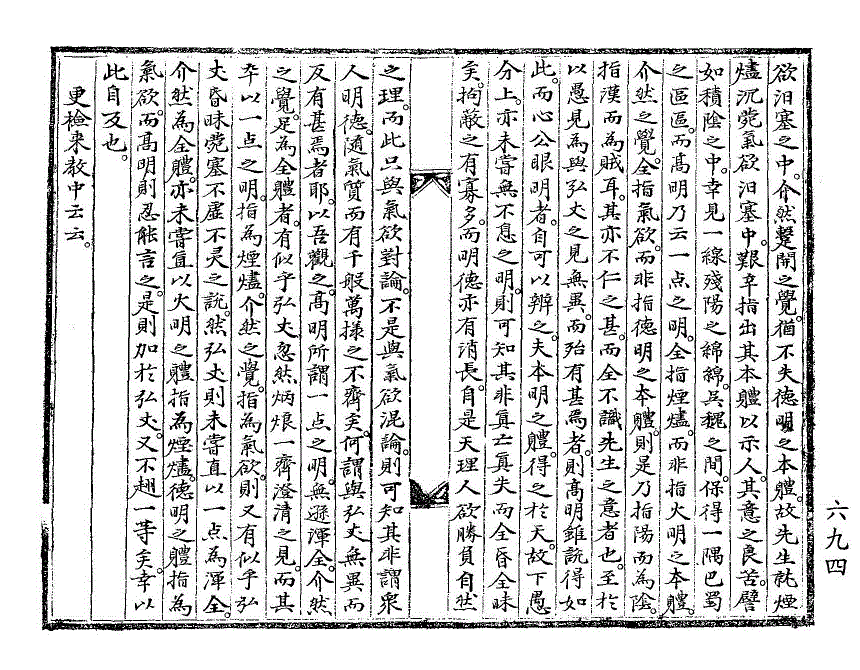 欲汨塞之中。介然蹔開之覺。猶不失德明之本體。故先生託煙
燼沉霿氣欲汨塞中。艱辛指出其本體以示人。其意之良苦。譬
如積陰之中。幸見一線殘陽之綿綿。吳魏之間。保得一隅巴蜀
之區區。而高明乃云一点之明。全指煙燼。而非指火明之本體。
介然之覺。全指氣欲。而非指德明之本體。則是乃指陽而為陰。
指漢而為賊耳。其亦不仁之甚。而全不識先生之意者也。至於
以愚見為與弘丈之見無異。而殆有甚焉者。則高明雖說得如
此。而心公眼明者。自可以辨之。夫本明之體。得之於天。故下愚
分上。亦未嘗無不息之明。則可知其非真亡真失而全昏全昧
矣。拘蔽之有寡多。而明德亦有消長。自是天理人欲勝負自然
之理。而此只與氣欲對論。不是與氣欲混論。則可知其非謂衆
人明德。隨氣質而有千般萬樣之不齊矣。何謂與弘丈無異而
反有甚焉者耶。以吾觀之。高明所謂一点之明。無遜渾全。介然
之覺。足為全體者。有似乎弘丈忽然炳烺一齊澄清之見。而其
卒以一点之明。指為煙燼。介然之覺。指為氣欲。則又有似乎弘
丈昏昧霿塞不虛不灵之說。然弘丈則未嘗直以一点為渾全。
介然為全體。亦未嘗直以火明之體指為煙燼。德明之體指為
氣欲。而高明則忍能言之。是則加於弘丈。又不趐一等矣。幸以
此自反也。
更檢来教中云云。
六九四